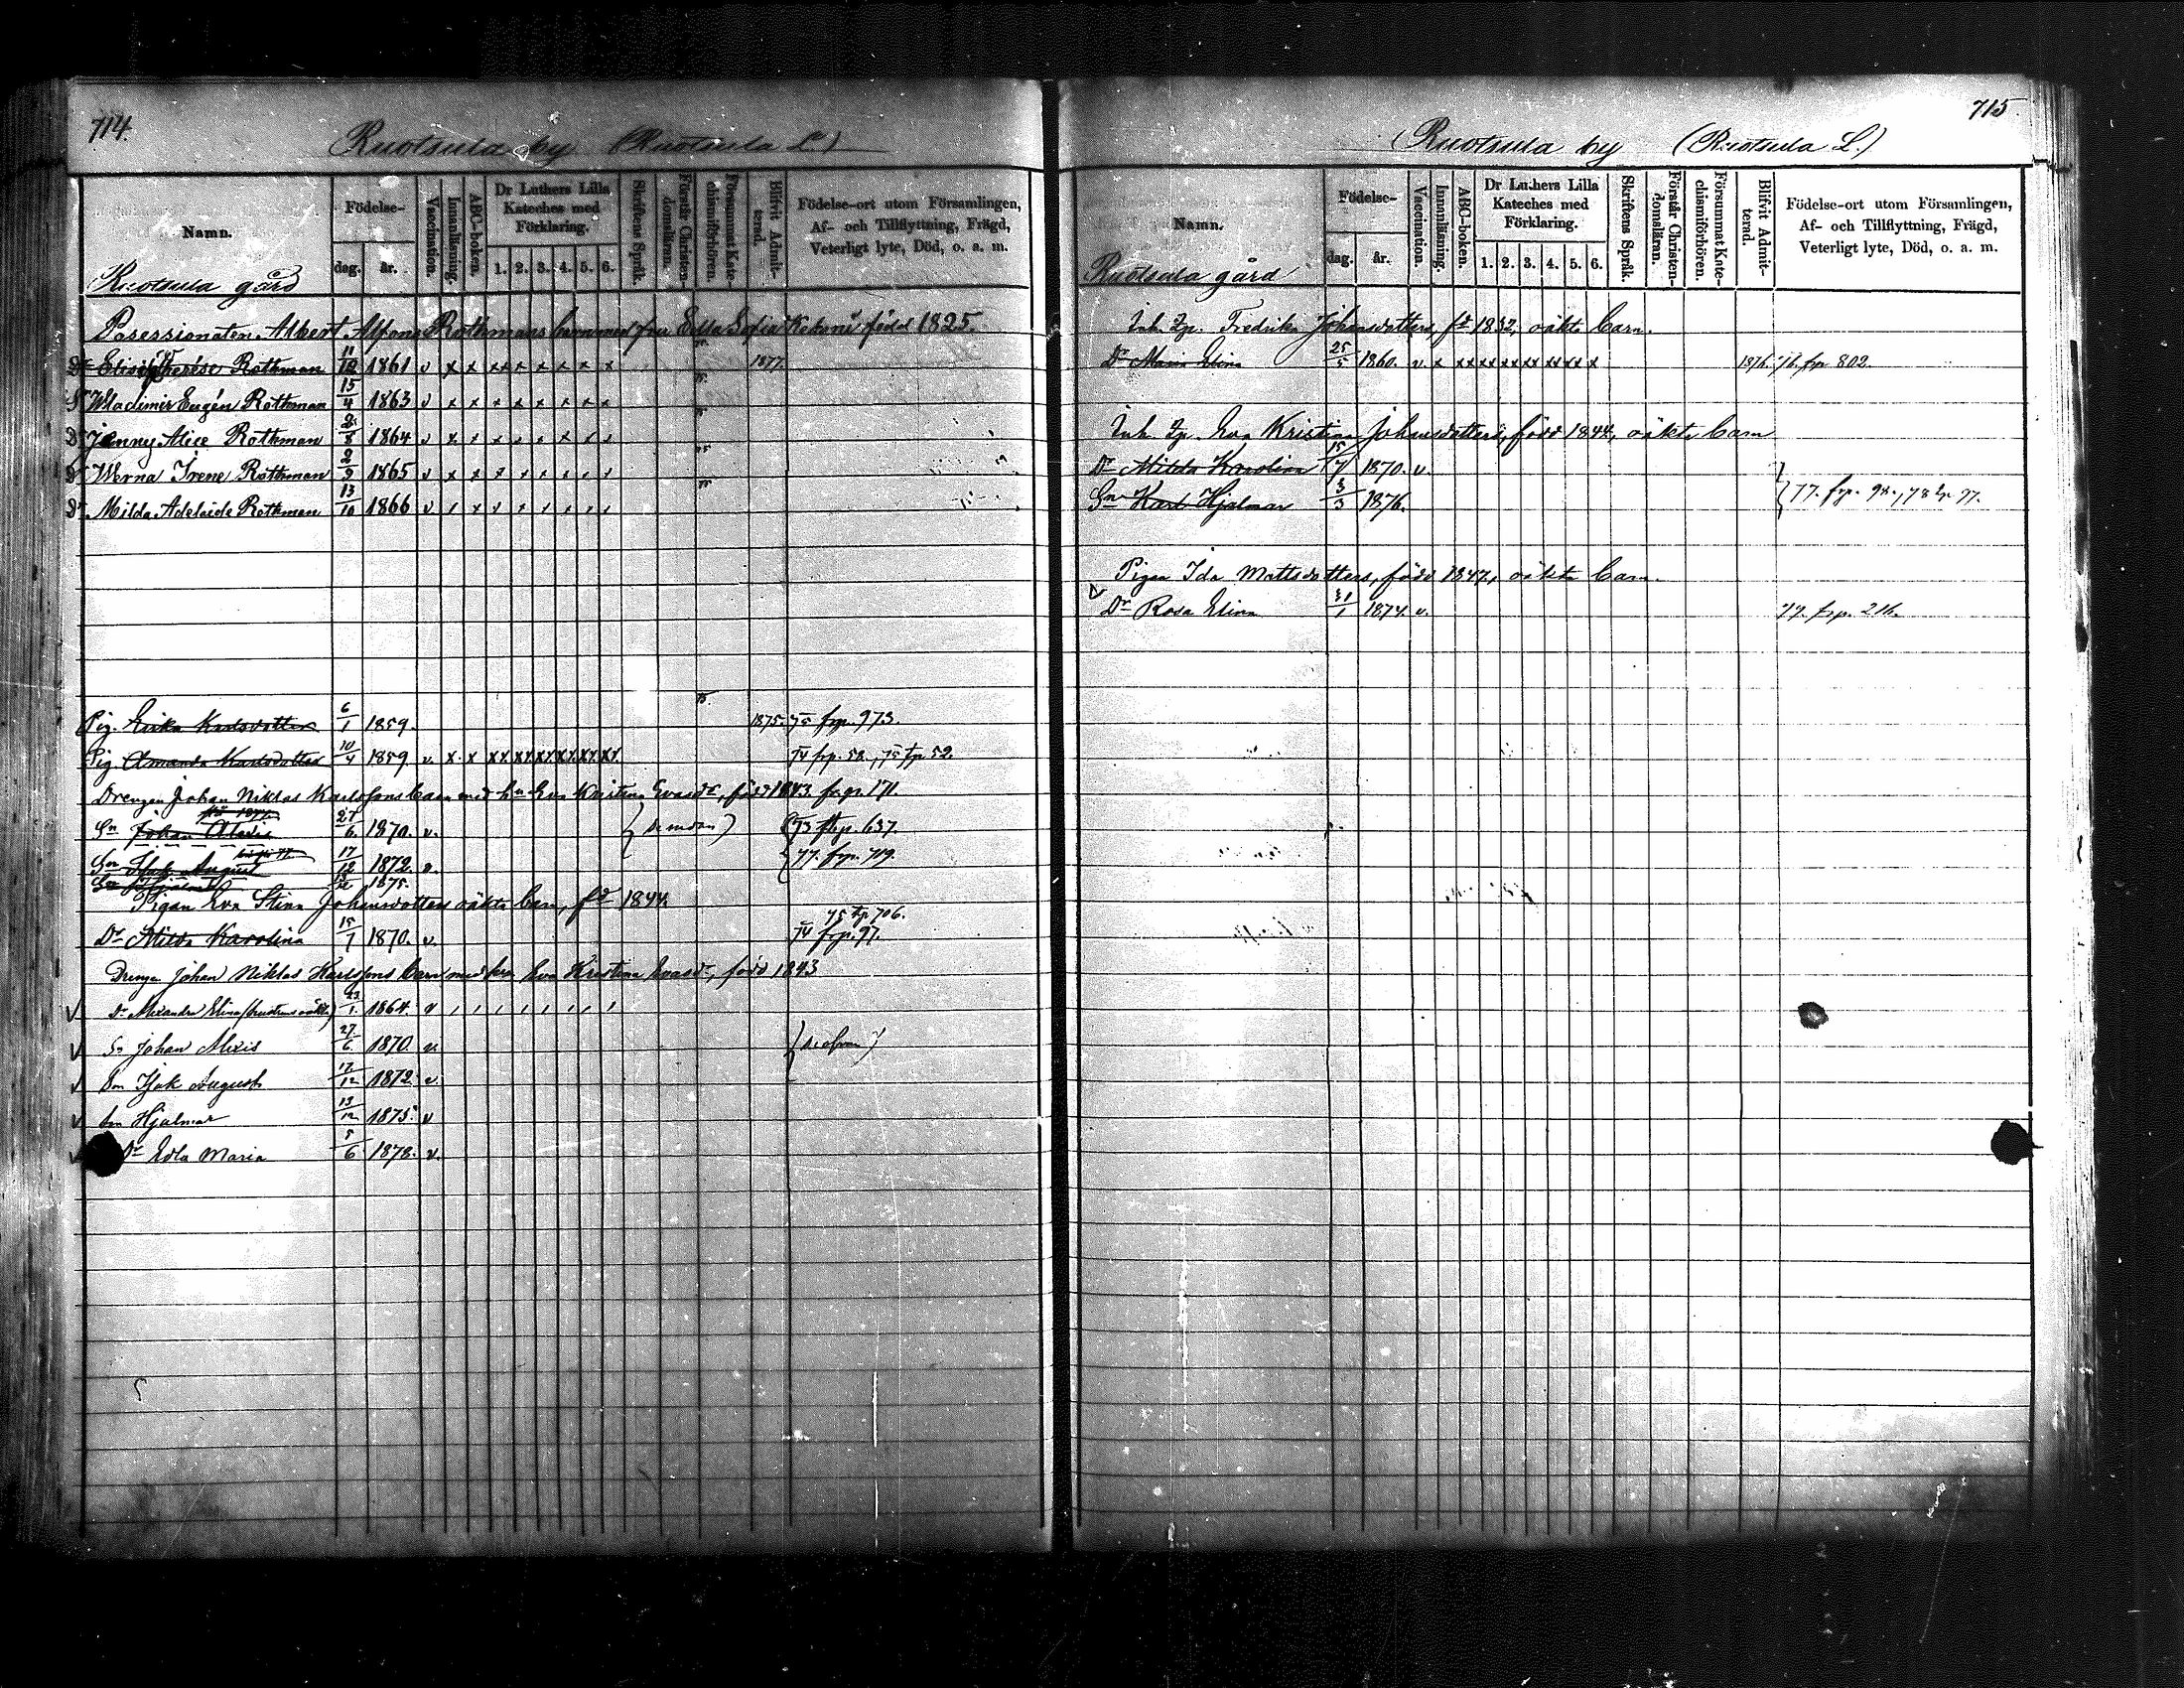 714.
Ruotsula by (Ruotsula L.)
Namn.
Födelse-
dag.
år.
Vaccination.
Innanläsning.
ABC-boken.
Dr Luthers Lilla
Kateches med
Förklaring.
1. 2. 3. 4. 5. 6.
Skriftens Språk.
Förstår Christen-
domsläran.
Försummat Kate-
chismiförhören.
Blifvit Admit-
terad.
Födelse-ort utom Församlingen,
Af- och Tillflyttning, Frägd,
Veterligt lyte, Död, o. a. m.
Ruotsula gård
Posessionaten Albert Alfons Rothmans barn med fru Edla Sofia född 1825.
Dr Therése Rothman 11/12 1861 v x x xx x x x x x 1877.
Sn Wladimir Eugén Rothman 15/4 1863 v x x x x x x x x
Dr Jenny Alice Rothman 2/8 1864 v x x x x x x x x
Dr Werna Irene Rothman 2/9 1865 v x x x x x x x x
Dr Milda Adelaide Rothman 13/10 1866 v
Pig. Erika Karlsdotter 6/1 1859. 1875. 75 frp. 973.
Pig. Amanda Karlsdotter 10/4 1859 v. x x xx xx xx xx xx xx 74 frp. 58., 75 tp 52.
Drengen Johan Niklas Karlssons barn med hu Eva Kristina Evasdr, född 1843. frp. 171.
Sn Johan Alexis 27/6 1870. v. (se nedan) 73 tp. 637.
Sn Isak August 17/12 1872. v. 77. frp. 719.
Sn Hjalmar 13/12 1875.
Pigan Eva Stina Johansdotters oäkta barn, fd 1844.
75 tp 706.
Dr Milda Karolina 15/7 1870. v. 74 frp. 97.
Drengen Johan Niklas Karlssons barn med hu Eva Kristina Evasdr, född 1843
Dr Alexandra Elina (hustruns oäkta) 23/1 1864. v
Sn Johan Alexis 27/6 1870. v. (se ofvan)
Sn Isak August 17/12 1872 v.
Sn Hjalmar 13/12 1875. v
Dr Edla Maria 5/6 1878. v.
715.
Ruotsula by (Ruotsula L.)
Namn.
Födelse-
dag.
år.
Vaccination.
Innanläsning.
ABC-boken.
Dr Luthers Lilla
Kateches med
Förklaring.
1. 2. 3. 4. 5. 6.
Skriftens Språk.
Förstår Christen-
domsläran.
Försummat Kate-
chismiförhören.
Blifvit Admit-
terad.
Födelse-ort utom Församlingen,
Af- och Tillflyttning, Frägd,
Veterligt lyte, Död, o. a. m.
Ruotsula gård
Inh. Qp. Fredrika Johansdotters, fd 1832, oäkta barn.
Dr Maria Elina 25/5 1860. v. x xx xx xx xx xx xx x 1876. 76. frp 802.
Inh. Qp. Eva Kristina Johansdotters, född 1844, oäkta barn
Dr Milda Karolina 15/7 1870. v.
Sn Karl Hjalmar 3/3 1876. 77. frp. 98., 78 tp. 97.
Pigan Ida Mattsdotters, född 1847, oäkta barn.
Dr Rosa Elina 31/1 1874. v. 77. frp. 216.